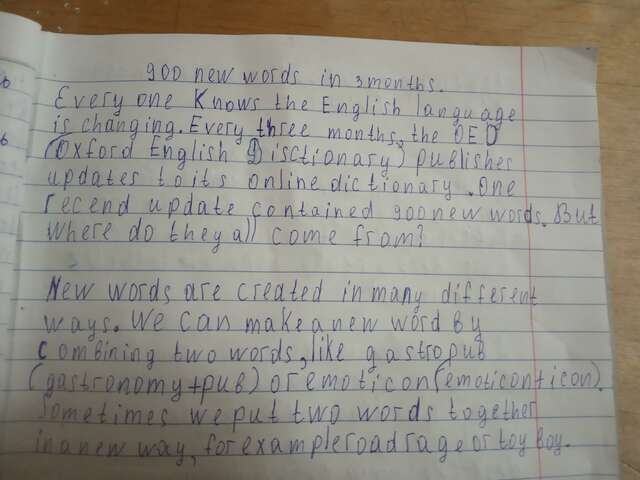 900 new words in 3 months.
Every one Knows the English language
is changing. Every three months, the OED
(Oxford English Disctionary) publishes
updates to its online dictionary. One
recend update contained 900 new words. But
where do they all come from?
New words are created in many different
ways. We can make a new word by
combining two words, like gastropub
(gastronomy+pub) or emoticon (emoticon+icon).
Sometimes we put two words together
in a new way, for example road rage or toy boy.